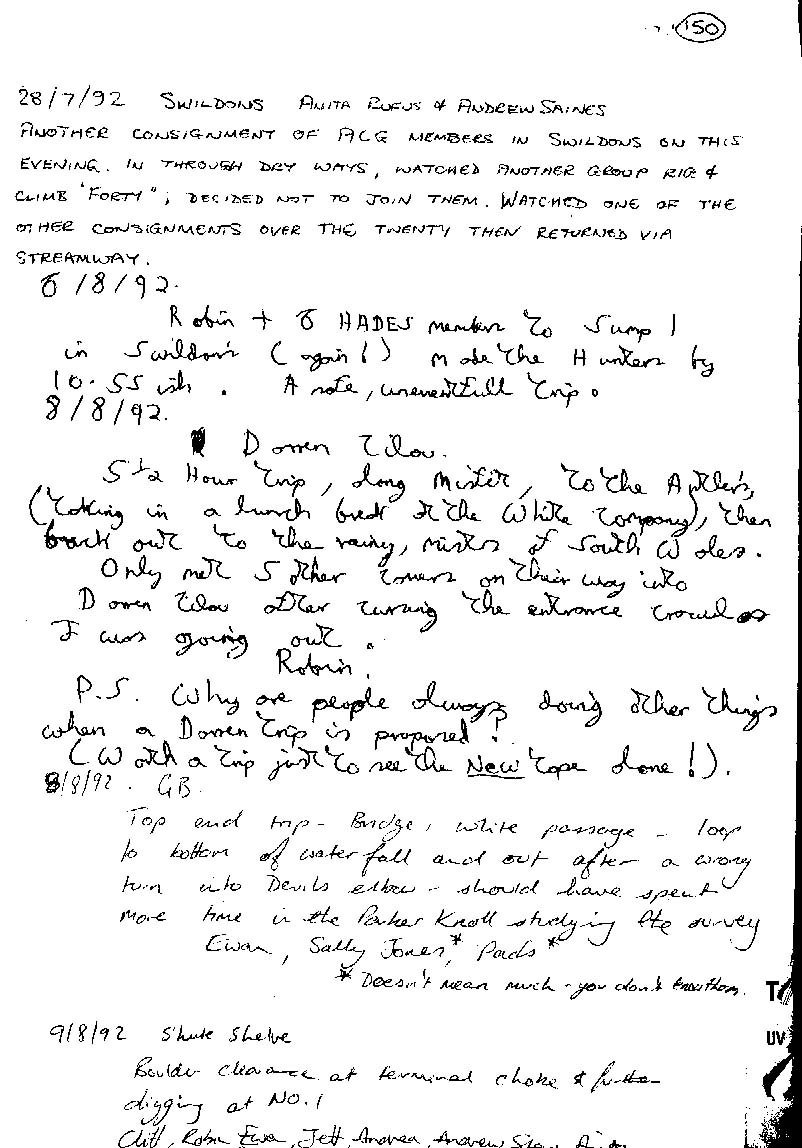 150
28/7/92 SWILDONS ANITA RUFUS & ANDREW SAINES
ANOTHER CONSIGNMENT OF ACG MEMBERS IN SWILDONS ON THIS
EVENING. IN THROUGH DRY WAYS, WATCHED ANOTHER GROUP RIG &
CLIMB "FORTY"; DECIDED NOT TO JOIN THEM. WATCHED ONE OF THE
OTHER CONSIGNMENTS OVER THE TWENTY THEN RETURNED VIA
STREAMWAY.
6/8/92.
Robin + 6 HADES members to Sump 1
in Swildon's (again!) made the Hunters by
10.55 ish. A safe, uneventfull trip.
8/8/92.
Darren Cilau.
5½ Hour trip, along to the Antlers,
(taking in a lunch break at the White Company), then
back out to the rainy, mists of South Wales.
Only met 5 other cavers on their way into
Darren Cilau after cursing the entrance crawl as
I was going out.
Robin.
P.S. Why are people always doing other things
when a Darren trip is proposed?
(Worth a trip just to see the New rope alone!).
8/8/92. GB.
Top end trip - Bridge, white passage - loop
to bottom of waterfall and out after a wrong
turn into Devils elbow - should have spent
more time in the Parker Knoll studying the survey
Ewan, Sally Jones*, Pads*
* Doesn't mean much - you don't know them.
9/8/92 Shute Shelve
Boulder clearance at terminal choke & further
digging at NO.1
Cliff, Robin Ewan, Jeff, Andrea, Andrew
UV